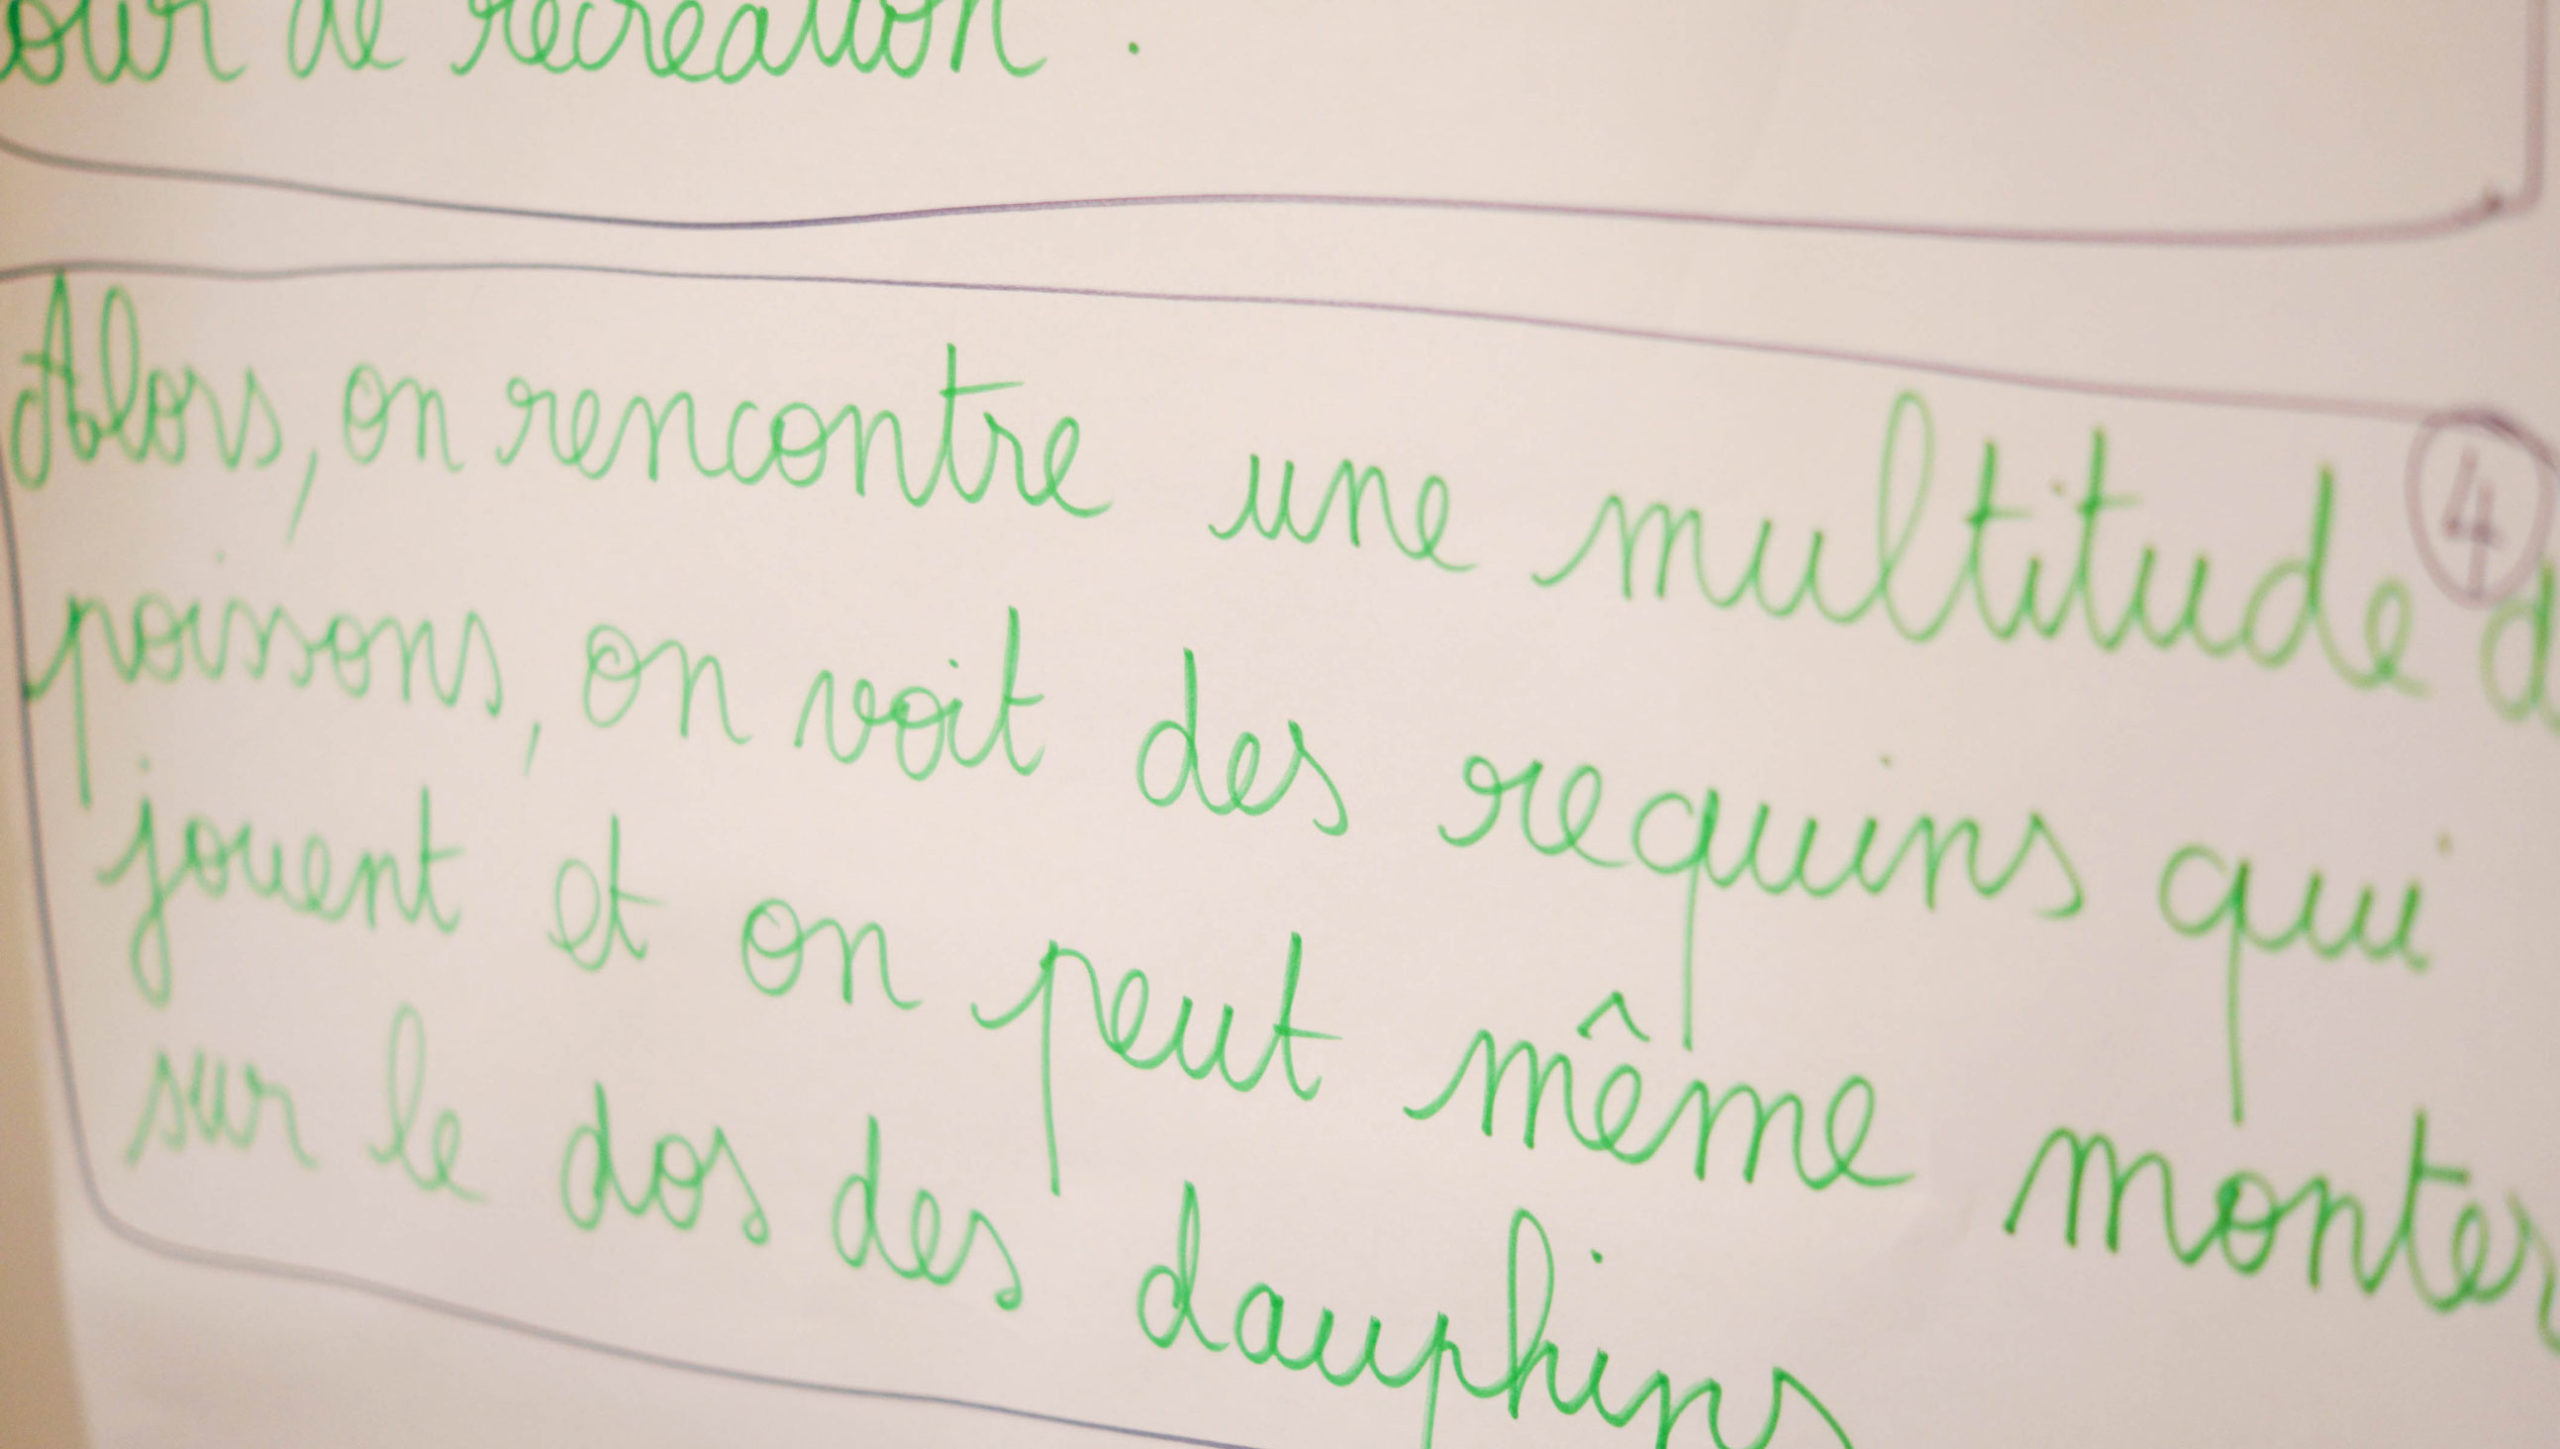 our de récréation .
4
Alors, on rencontre une multitude d
poissons, on voit des requins qui
jouent et on peut même monter
sur le dos des dauphins